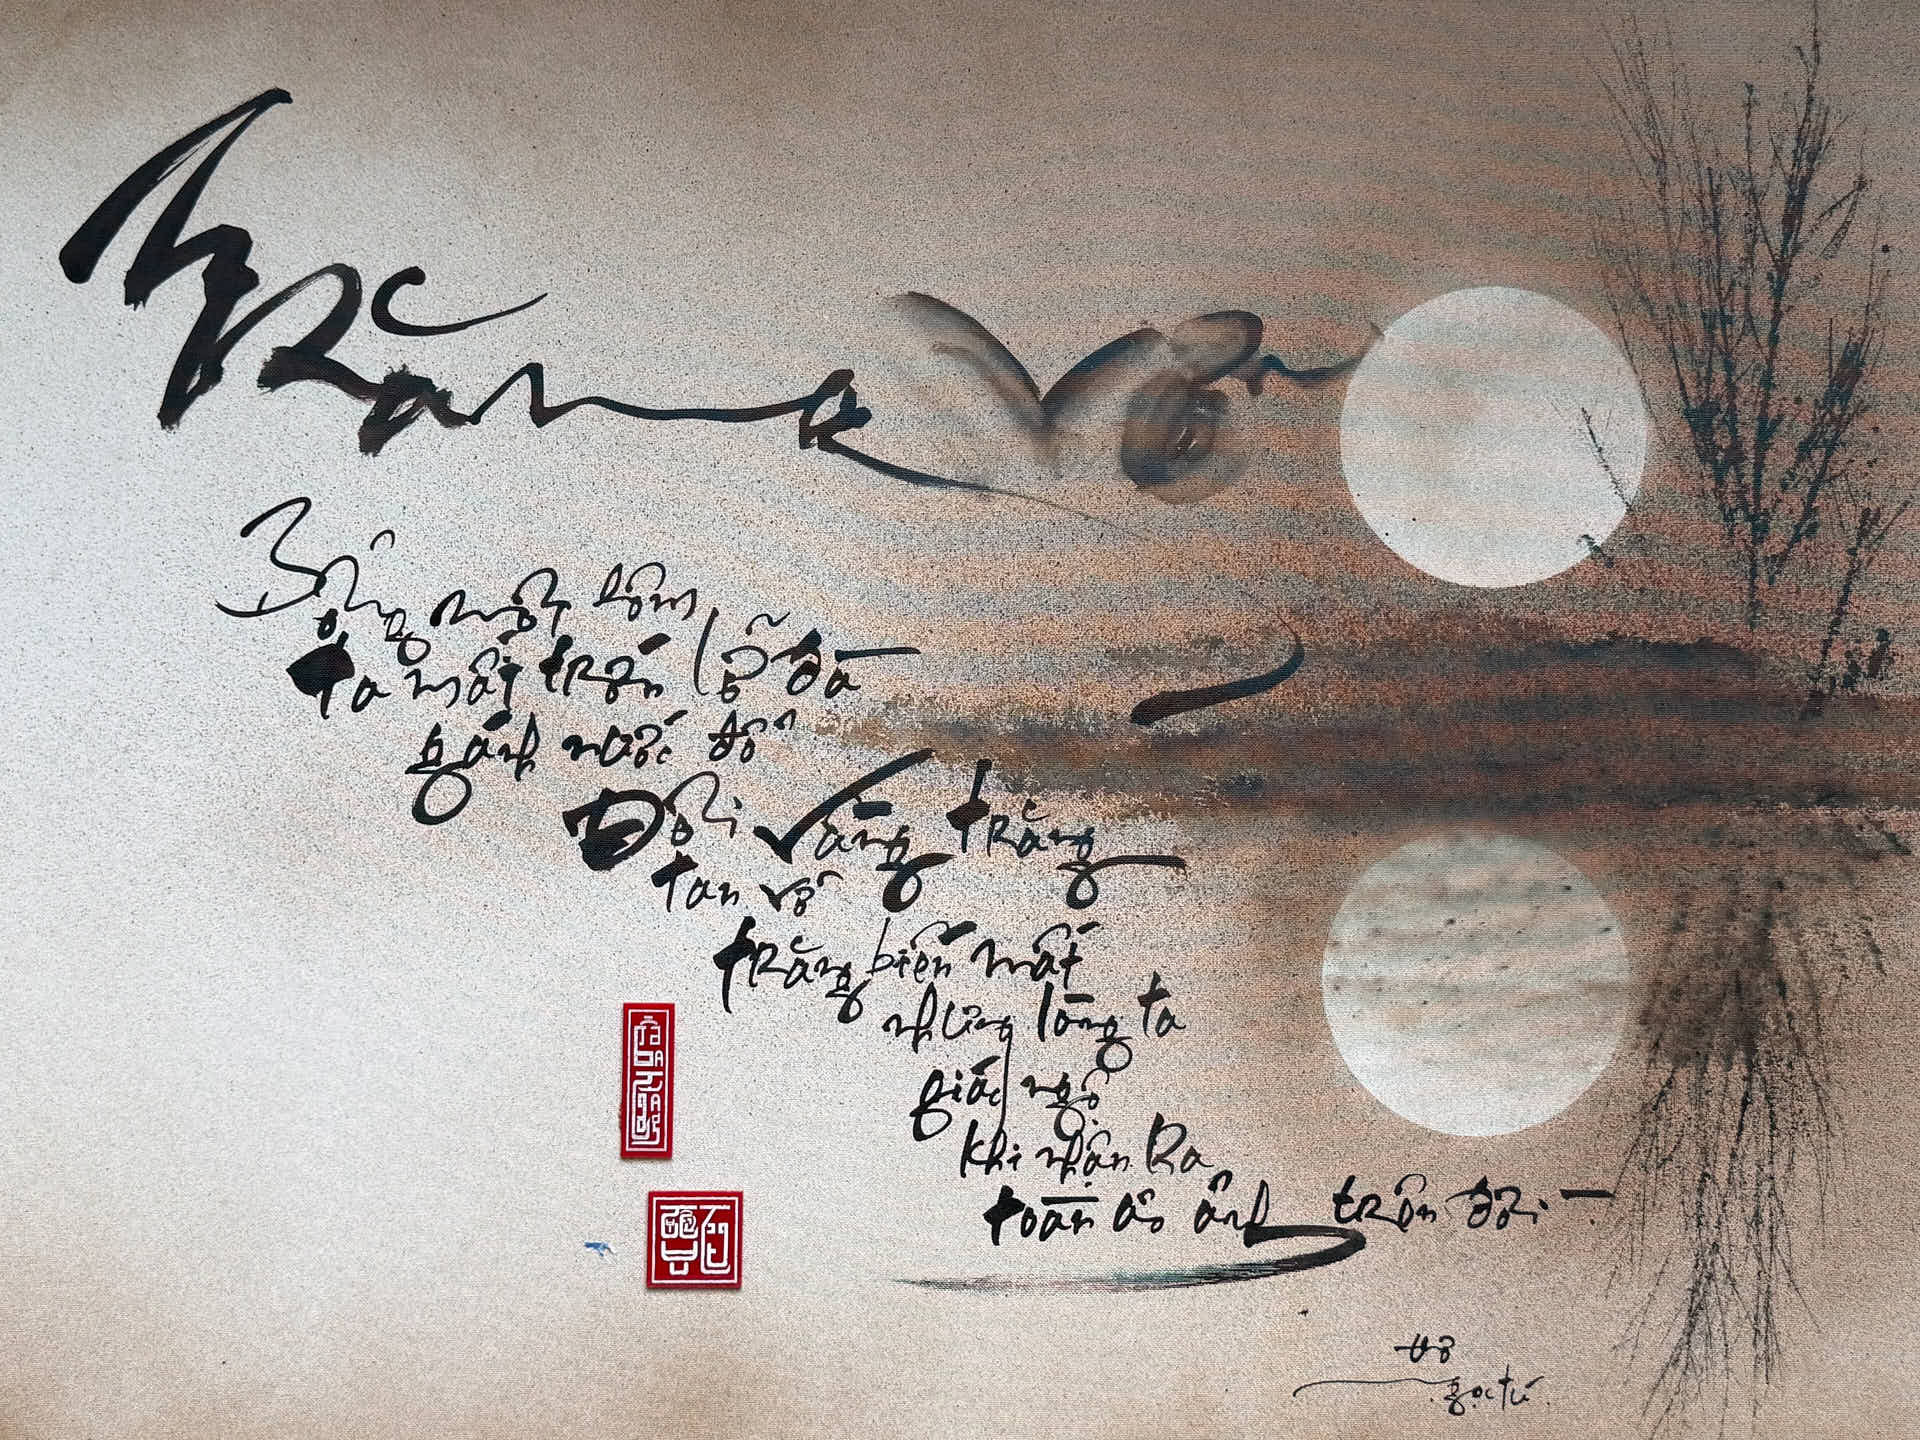 Trăng
Bỗng một hôm
ta mất trớn lỡ đà
gánh nước đổ
Đôi vầng trăng
tan vỡ
trăng biến mất
nhưng lòng ta
giác ngộ
khi nhận Ra
toàn ảo ảnh trên đời
thơ